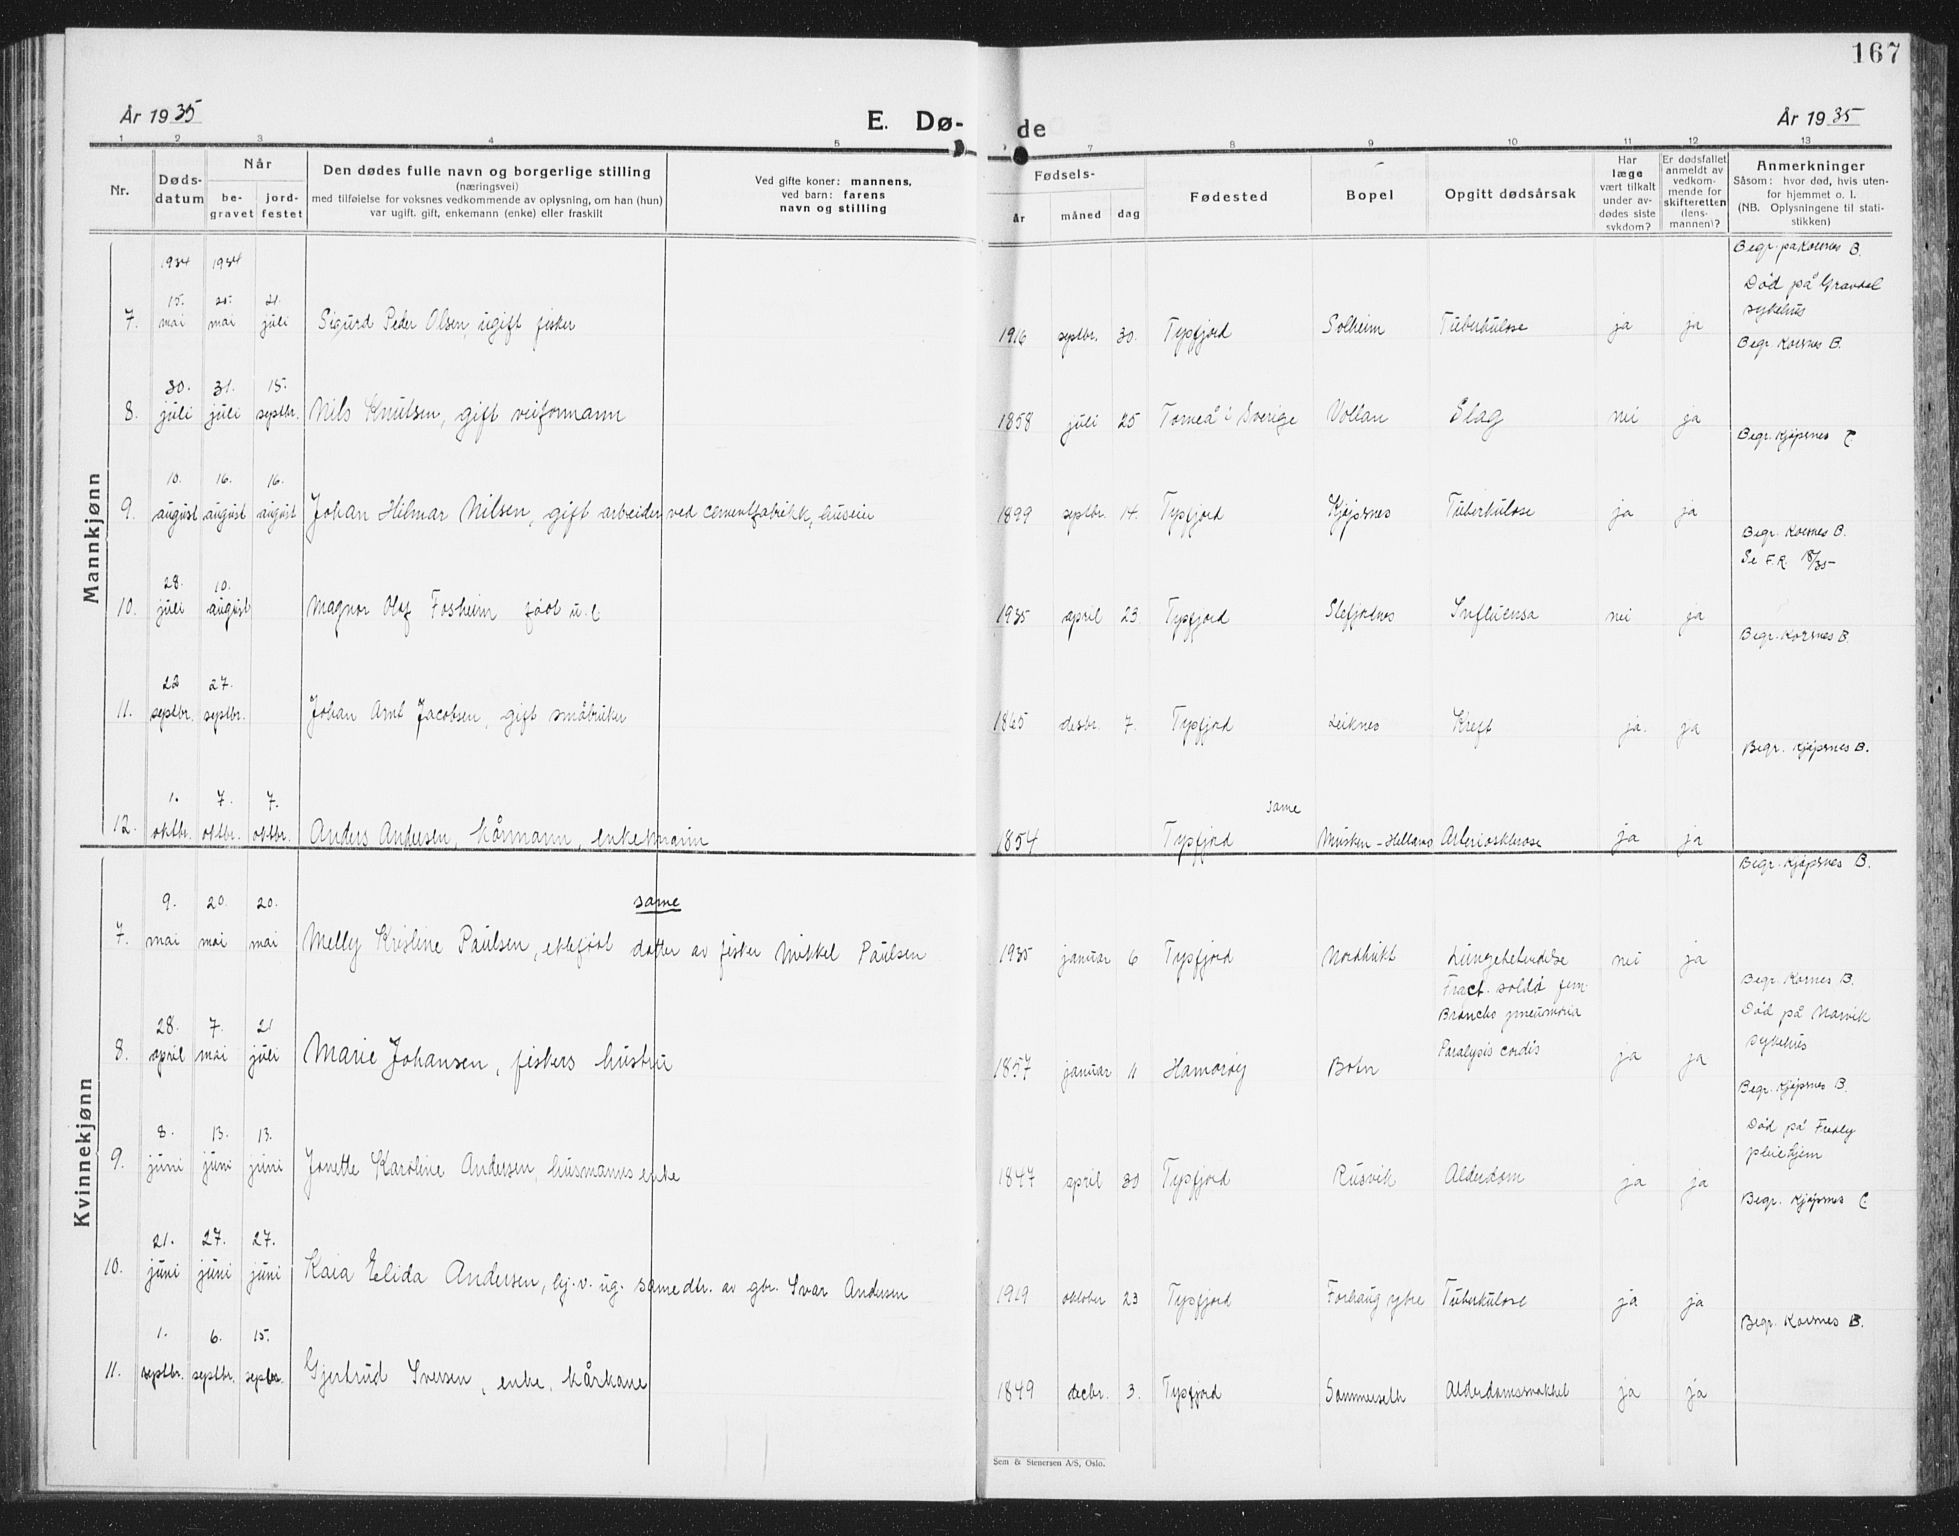 167
År 1935
E. Dø-
de
År 1935
1 2 3 4 5 7 8 9 10 11 12 13
Nr.
Døds-
datum
Når
be-
gravet
jord-
festet
Den dødes fulle navn og borgerlige stilling
(næringsvei)
med tilføielse for voksnes vedkommende av oplysning, om han (hun)
var ugift, gift, enkemann (enke) eller fraskilt
Ved gifte koner: mannens,
ved barn: farens
navn og stilling
Fødsels-
år
måned
dag
Fødested
Bopel
Opgitt dødsårsak
Har
læge
vært tilkalt
under av-
dødes siste
sykdom?
Er dødsfallet
anmeldt av
vedkom-
mende for
skifteretten
(lens-
mannen)?
Anmerkninger
Såsom: hvor død, hvis uten-
for hjemmet o. l.
(NB. Oplysningene til stati-
stikken)
Mannkjønn
1934 1934
Begr. på Korsnes B.
Død på Gravdal
sykehus
15. 20. 21.
7. mai mai juli Sigurd Peder Olsen, ugift fisker 1916 septbr. 30. Tysfjord Solheim Tuberkulose ja ja
Begr. Korsnes B.
30. 31. 15.
8. juli juli septbr. Nils Knutsen, gift veiformann 1858 juli 25 Torneå i Sverige Vollan Slag nei ja
Begr. Kjøpsnes C
10. 16. 16.
9. august august august Johan Hilmar Nilsen, gift arbeider ved cementfabrikk, huseier 1899 septbr. 14. Tysfjord Kjøpsnes Tuberkulose ja ja
Begr. Korsnes B.
Se F.R. 18/35
28. 10.
10. juli august Magnor Olaf Fosheim født u.e. 1935 april 23 Tysfjord Stefjordnes Influensa nei ja
Begr. Korsnes B.
22 27.
11. septbr. septbr. Johan Arnt Jacobsen, gift småbruker 1865 desbr. 7. Tysfjord Leiknes Kreft ja. ja
Begr. Kjøpsnes B.
1. 7. 7. same
12. oktbr. oktbr. oktbr. Anders Andersen, kårmann, enkemann 1854 Tysfjord Musken - Helland Arterioskleose ja ja
Begr. Kjøpsnes B.
Kvinnekjønn
9. 20. 20. same
7. mai mai mai Melly Kristine Paulsen, ektefødt datter av fisker Mikkel Paulsen 1935 januar 6 Tysfjord Nordbukt Lungebetendelse nei ja
Begr. Korsnes B.
Død på Narvik
sykehus
Fract. fem.
Broncho pneumonia
28. 7. 21
8. april mai juli Marie Johansen, fiskers hustru 1857 januar 11 Hamarøy Botn Paralysis cordis ja ja
Begr. Kjøpsnes B.
Død på Fredly
pleiehjem
8. 13. 13.
9. juni juni juni Jonette Karoline Andersen, husmanns enke 1847 april 30 Tysfjord Rusvik Alderdom ja ja
Begr. Kjøpsnes C.
21. 27. 27.
10. juni juni juni Kaia Elida Andersen, hj.v. ug. same dtr. av gbr. Ivar Andersen 1919 oktober 23 Tysfjord Forhaug ytre Tuberkulose ja ja
Begr. Korsnes B.
1. 6. 15.
11. septbr. septbr. septbr. Gjertrud Iversen, enke, kårkone 1849 decbr. 3. Tysfjord Sommerseth Alderdomssvakhet ja ja
Sem & Stenersen A/S, Oslo.